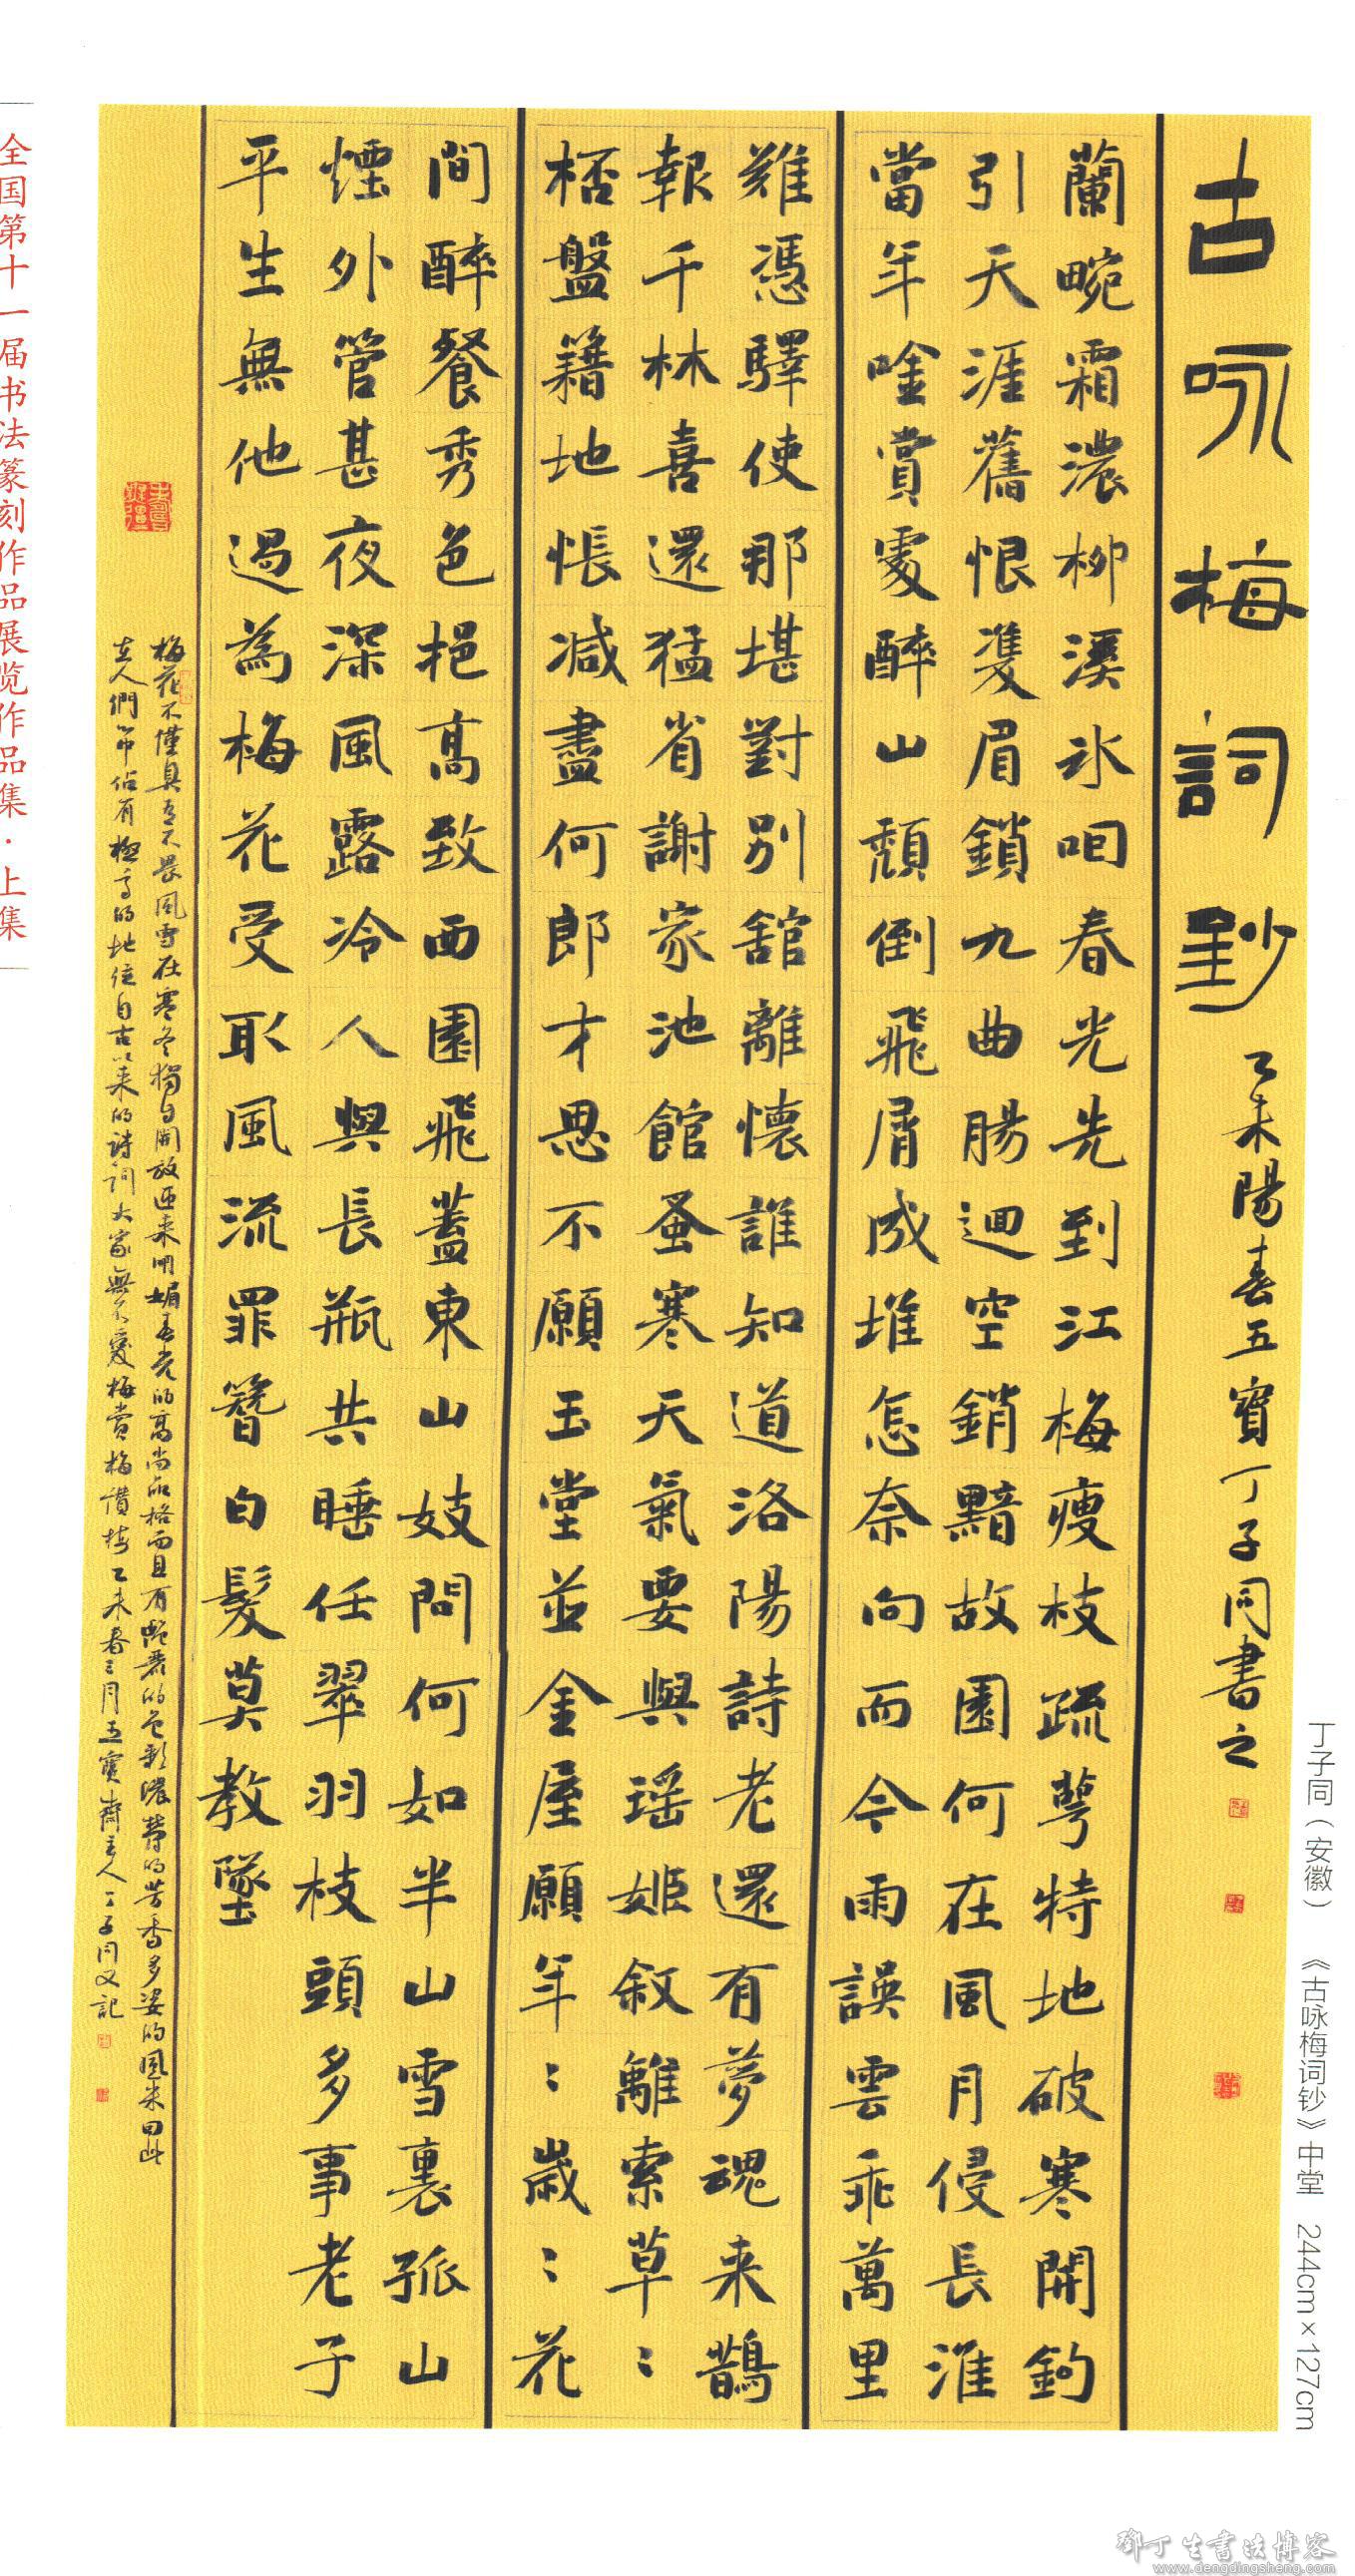 古咏梅詞鈔
乙未陽春五寶丁子同書之
蘭畹霜濃柳溪冰咽春光先到江梅瘦枝疏萼特地破寒開鈎
引天涯舊恨雙眉鎖九曲腸迴空銷黯故園何在風月侵長淮
當年唫賞處醉山頹倒飛屑成堆怎奈向而今雨誤雲乖萬里
難憑驛使那堪對別舘離懷誰知道洛陽詩老還有夢魂来鵲
報千林喜還猛省謝家池館蚤寒天氣要與瑶姬叙離索草〻
桮盤籍地悵减盡何郎才思不願玉堂並金屋願年〻歲〻花
間醉餐秀色挹高致西園飛蓋東山妓問何如半山雪裏孤山
煙外管甚夜深風露冷人與長瓶共睡任翠羽枝頭多事老子
平生無他過為梅花受取風流罪簪白髮莫教墜
梅花不僅具有不畏風雪在寒冬獨自開放迎来明媚春光的高尚品格而且有艷麗的色彩濃馨的芳香多姿的風采因此
在人們 佔有極高的地位自古以来的詩詞大家無不愛梅賞梅讚梅乙未春三月五寶齋主人丁子同又記
全国第十一届书法篆刻作品展览作品集·上集
丁子同（安徽） 《古咏梅词钞》中堂 244cm×127cm
鄧丁生書法博客
www.dengdingsheng.com